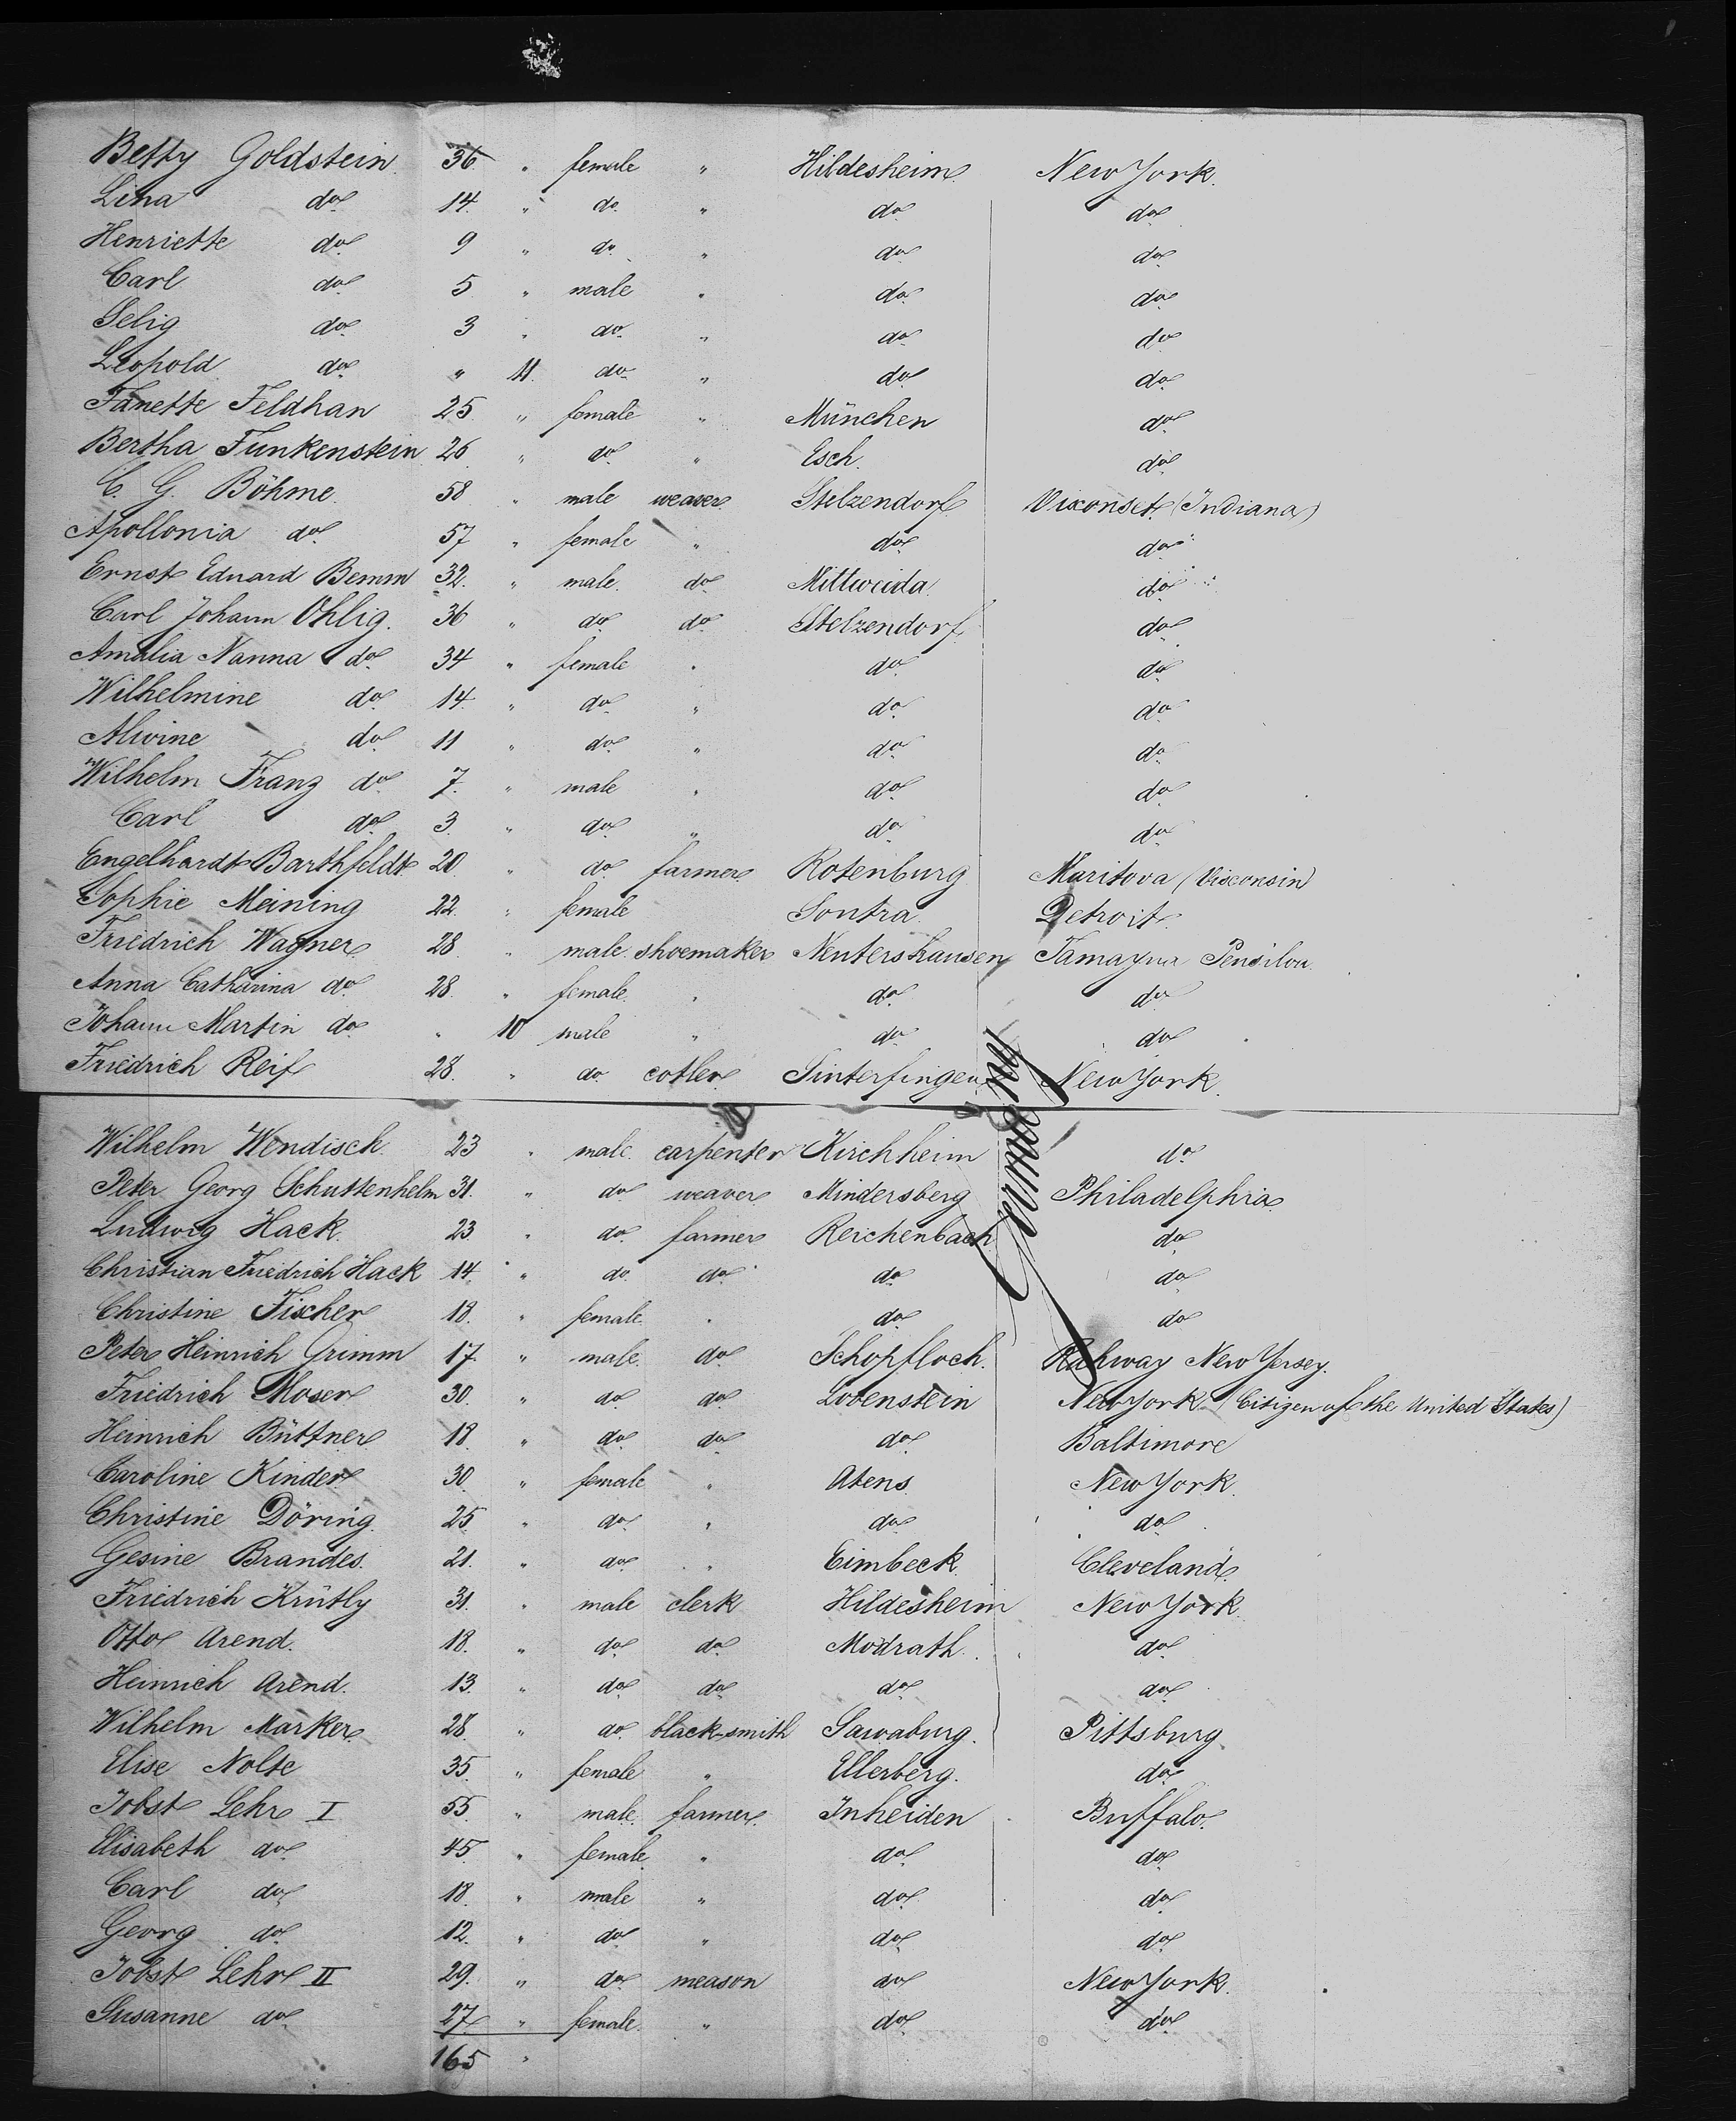 Betty Goldstein 36 " female " Hildesheim New York.
Lina do 14. " do. " do do
Henriette do 9 " do. " do do
Carl do 5 " male " do do
Selig do 3 " do. " do do
Leopold do " 11. do " do do
Fanette Feldhan 25 " female " München do
Bertha Funkenstein 26 " do " Esch. do
C. G. Böhme 58 " male weaver Stelzendorf Visconset (Indiana)
Apollonia do 57 " female " do do
Ernst Eduard Bemm 32. " male. do Mittweida. do
Carl Johann Ohlig. 36 " do do Stelzendorf do
Amalia Nanna do 34 " female " do do
Wilhelmine do 14 " do " do do
Alwine do 11 " do " do do
Wilhelm Franz do 7. " male " do do
Carl do 3. " do " do do
Engelhardt Barthfeldt 20. " do farmer Rotenburg Maritova (Visconsin)
Sophie Meining 22. " female Sontra. Detroit.
Friedrich Wagner 28. " male. shoemaker Nentershausen Tamaqua Pensilou.
Anna Catharina do 28. " female. " do do
Johann Martin do " 10 male " do do
Friedrich Reif 28. " do. cotler Sinterfingen New York.
Germany
Wilhelm Wendisch. 23 " male. carpenter Kirchheim do
Peter Georg Schuttenhelm 31. " do weaver Mindersberg Philadelphia
Ludwig Hack. 23 " do. farmer Reichenbach do
Christian Friedrich Hack 14. " do. do do do
Christine Fischer 18. " female. " do do
Peter Heinrich Grimm 17. " male. do Schopfloch. Rahway New Yersey.
Friedrich Moser 30. " do do Lovenstein New York (Citizen of the United States)
Heinrich Büttner 18. " do do do Baltimore
Caroline Kinder 30. " female " Atens New York.
Christine Döring. 25 " do. " do do
Gesine Brandes. 21. " do " Eimbeck. Cleveland.
Friedrich Krütly 31. " male clerk Hildesheim New York.
Otto Arend. 18. " do do Modrath. do
Heinrich Arend. 13. " do do do do
Wilhelm Marker 28. " do. black-smith Sawaburg. Pittsburg
Elise Nolte 35. " female " Ellerberg. do
Jobst Lehr I 55. " male. farmer. Inheiden Buffalo.
Elisabeth do 45. " female. " do do
Carl do 18. " male " do do
Georg do 12. " do " do do
Jobst Lehr II 29. " do meason do New York.
Susanne do 27. " female. " do do
165 "